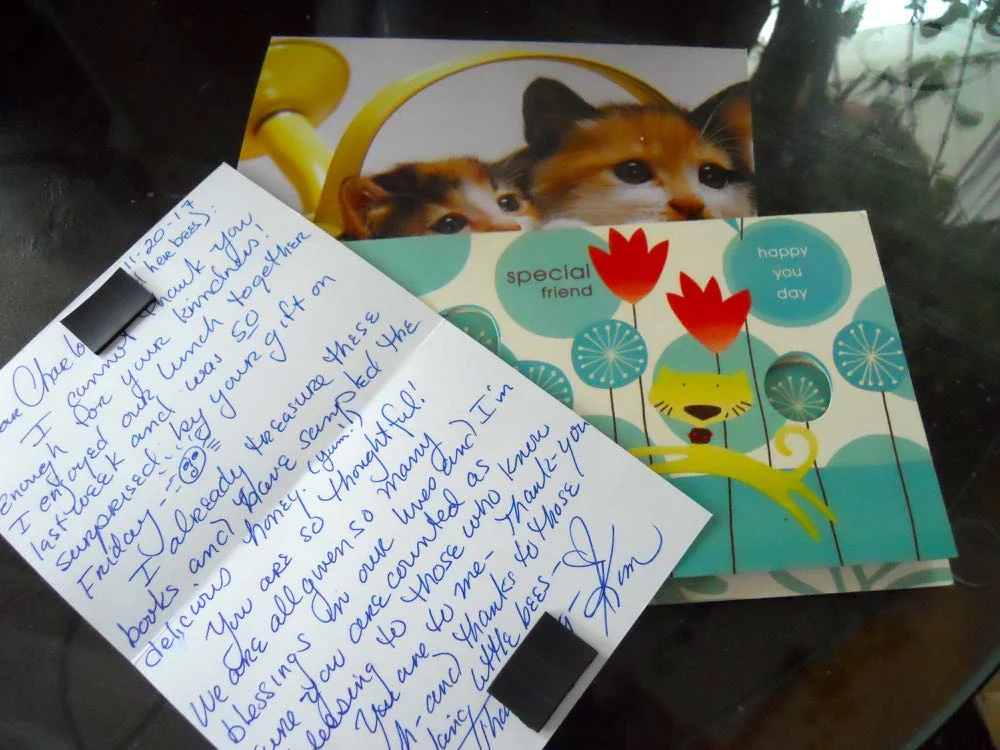 11-20-17
Charlo
(& her bees):
I cannot thank you
enough for your kindness!
I enjoyed our lunch together
last week and was SO
surprised by your gift on
Friday --
I already treasure these
books and have sampled the
delicious honey (yum!)
You are so thoughtful!
We are all given so many
blessings in our lives and I'm
sure you are counted as
blessing to those who know
You are to me - thank-you
and thanks to those
little bees -
Kim
special
friend
happy
you
day